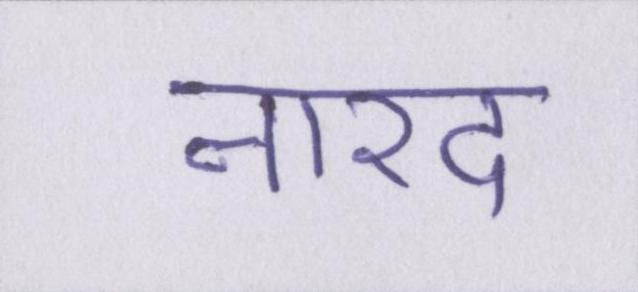 नारद